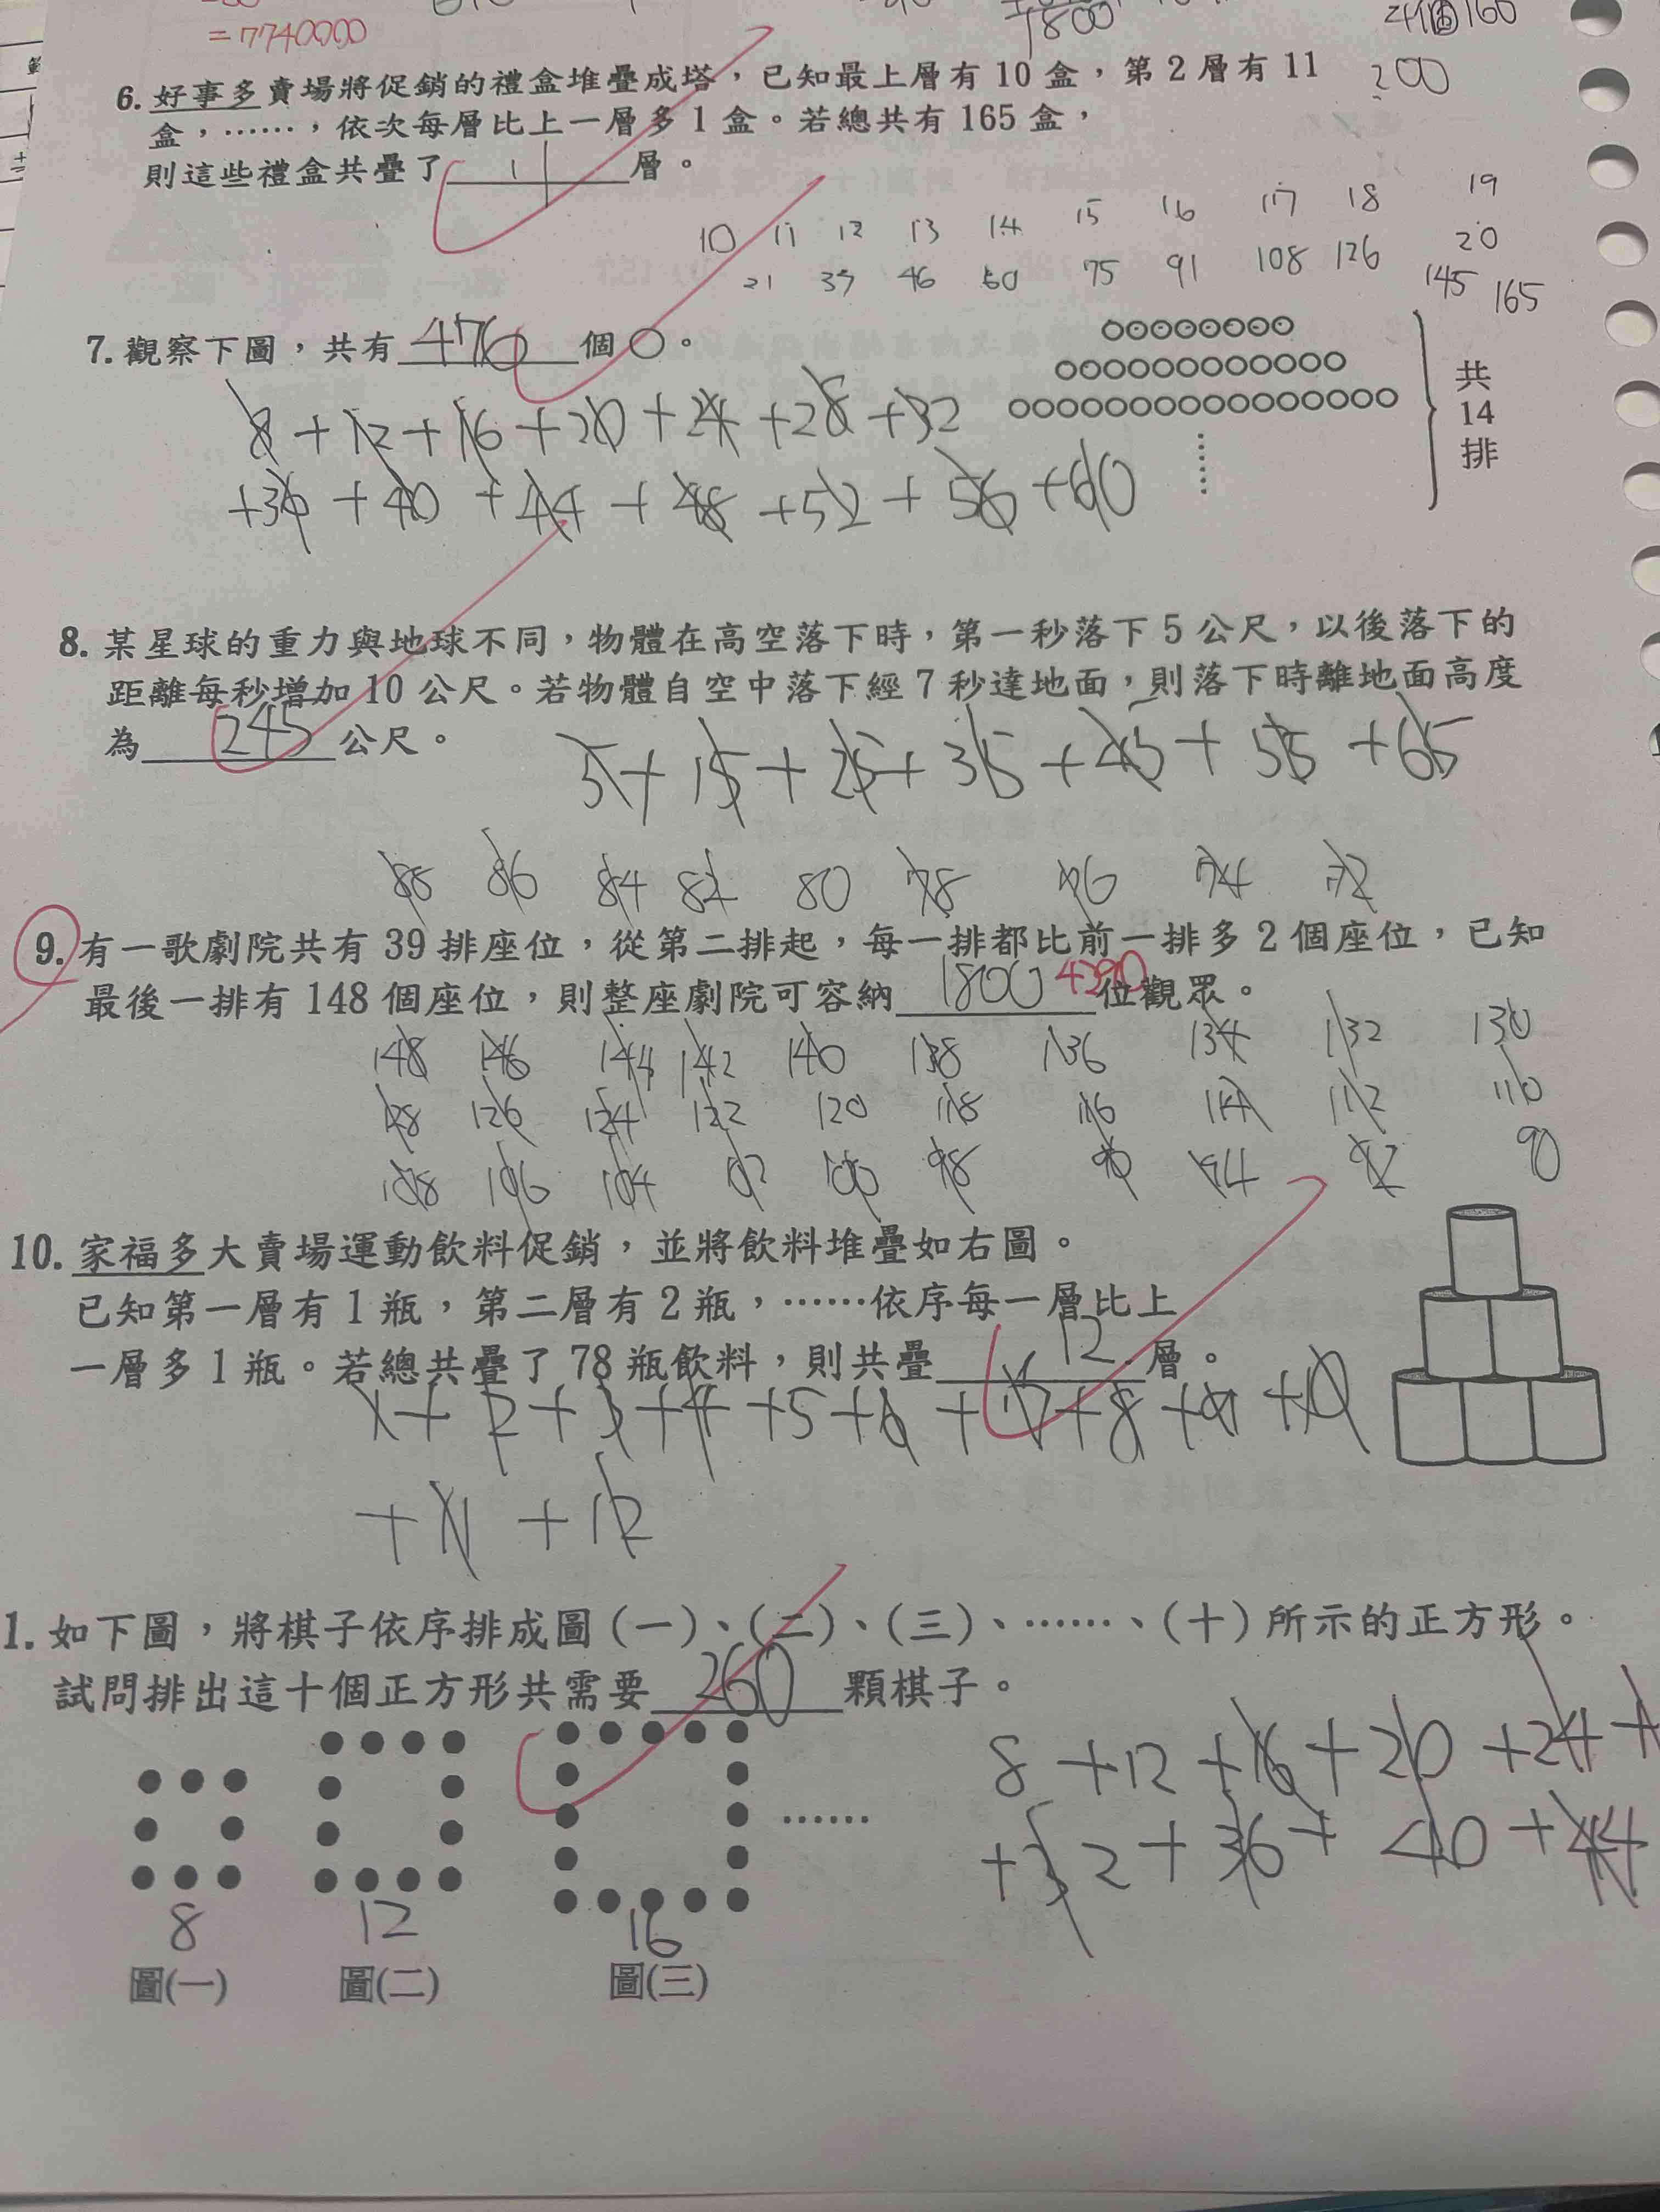 =7740000
1800
160
200
6. 好事多賣場將促銷的禮盒堆疊成塔，已知最上層有 10 盒，第 2 層有 11
盒，……，依次每層比上一層多 1 盒。若總共有 165 盒，
則這些禮盒共疊了 11 層。
10 11 12 13 14 15 16 17 18 19
20
21 33 46 60 75 91 108 126 145 165
7. 觀察下圖，共有 476 個○。
共
14
排
……
8+12+16+20+24+28+32
+36+40+44+48+52+56+60
8. 某星球的重力與地球不同，物體在高空落下時，第一秒落下 5 公尺，以後落下的
距離每秒增加 10 公尺。若物體自空中落下經 7 秒達地面，則落下時離地面高度
為 245 公尺。
5+15+25+35+45+55+65
88 86 84 82 80 78 76 74 72
9. 有一歌劇院共有 39 排座位，從第二排起，每一排都比前一排多 2 個座位，已知
最後一排有 148 個座位，則整座劇院可容納 1800 4290 位觀眾。
148 146 144 142 140 138 136 134 132 130
128 126 124 122 120 118 116 114 112 110
108 106 104 102 100 98 96 94 92 90
10. 家福多大賣場運動飲料促銷，並將飲料堆疊如右圖。
已知第一層有 1 瓶，第二層有 2 瓶，……依序每一層比上
一層多 1 瓶。若總共疊了 78 瓶飲料，則共疊 12 層。
1+2+3+4+5+6+7+8+9+10
+11+12
1. 如下圖，將棋子依序排成圖(一)、(二)、(三)、……、(十)所示的正方形。
試問排出這十個正方形共需要 260 顆棋子。
8+12+16+20+24+
+32+36+40+44
……
8 12 16
圖(一) 圖(二) 圖(三)